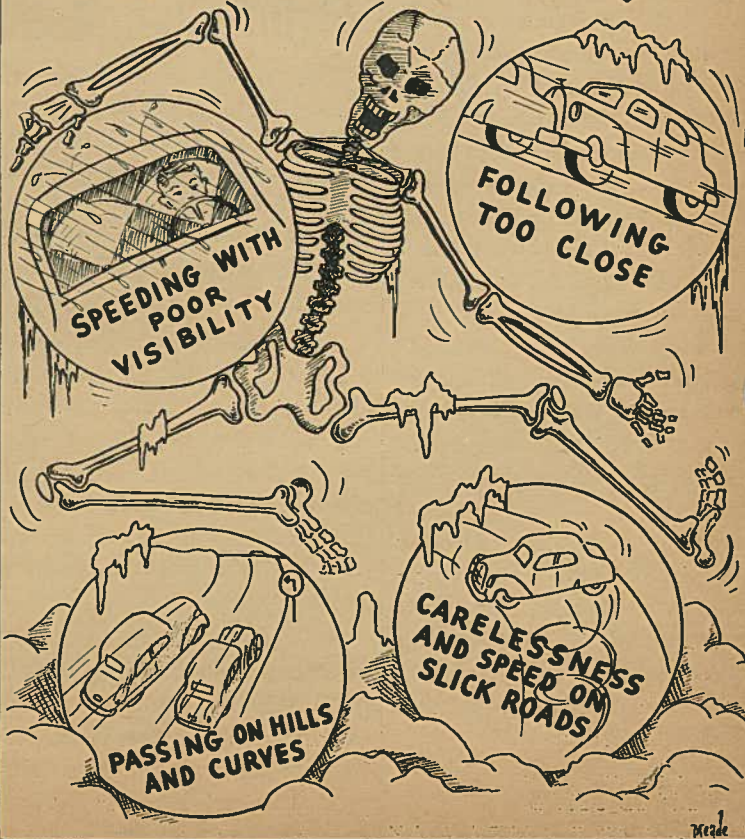 SPEEDING WITH
POOR
VISIBILITY
FOLLOWING
TOO CLOSE
PASSING ON HILLS
AND CURVES
CARELESSNESS
AND SPEED ON
SLICK ROADS